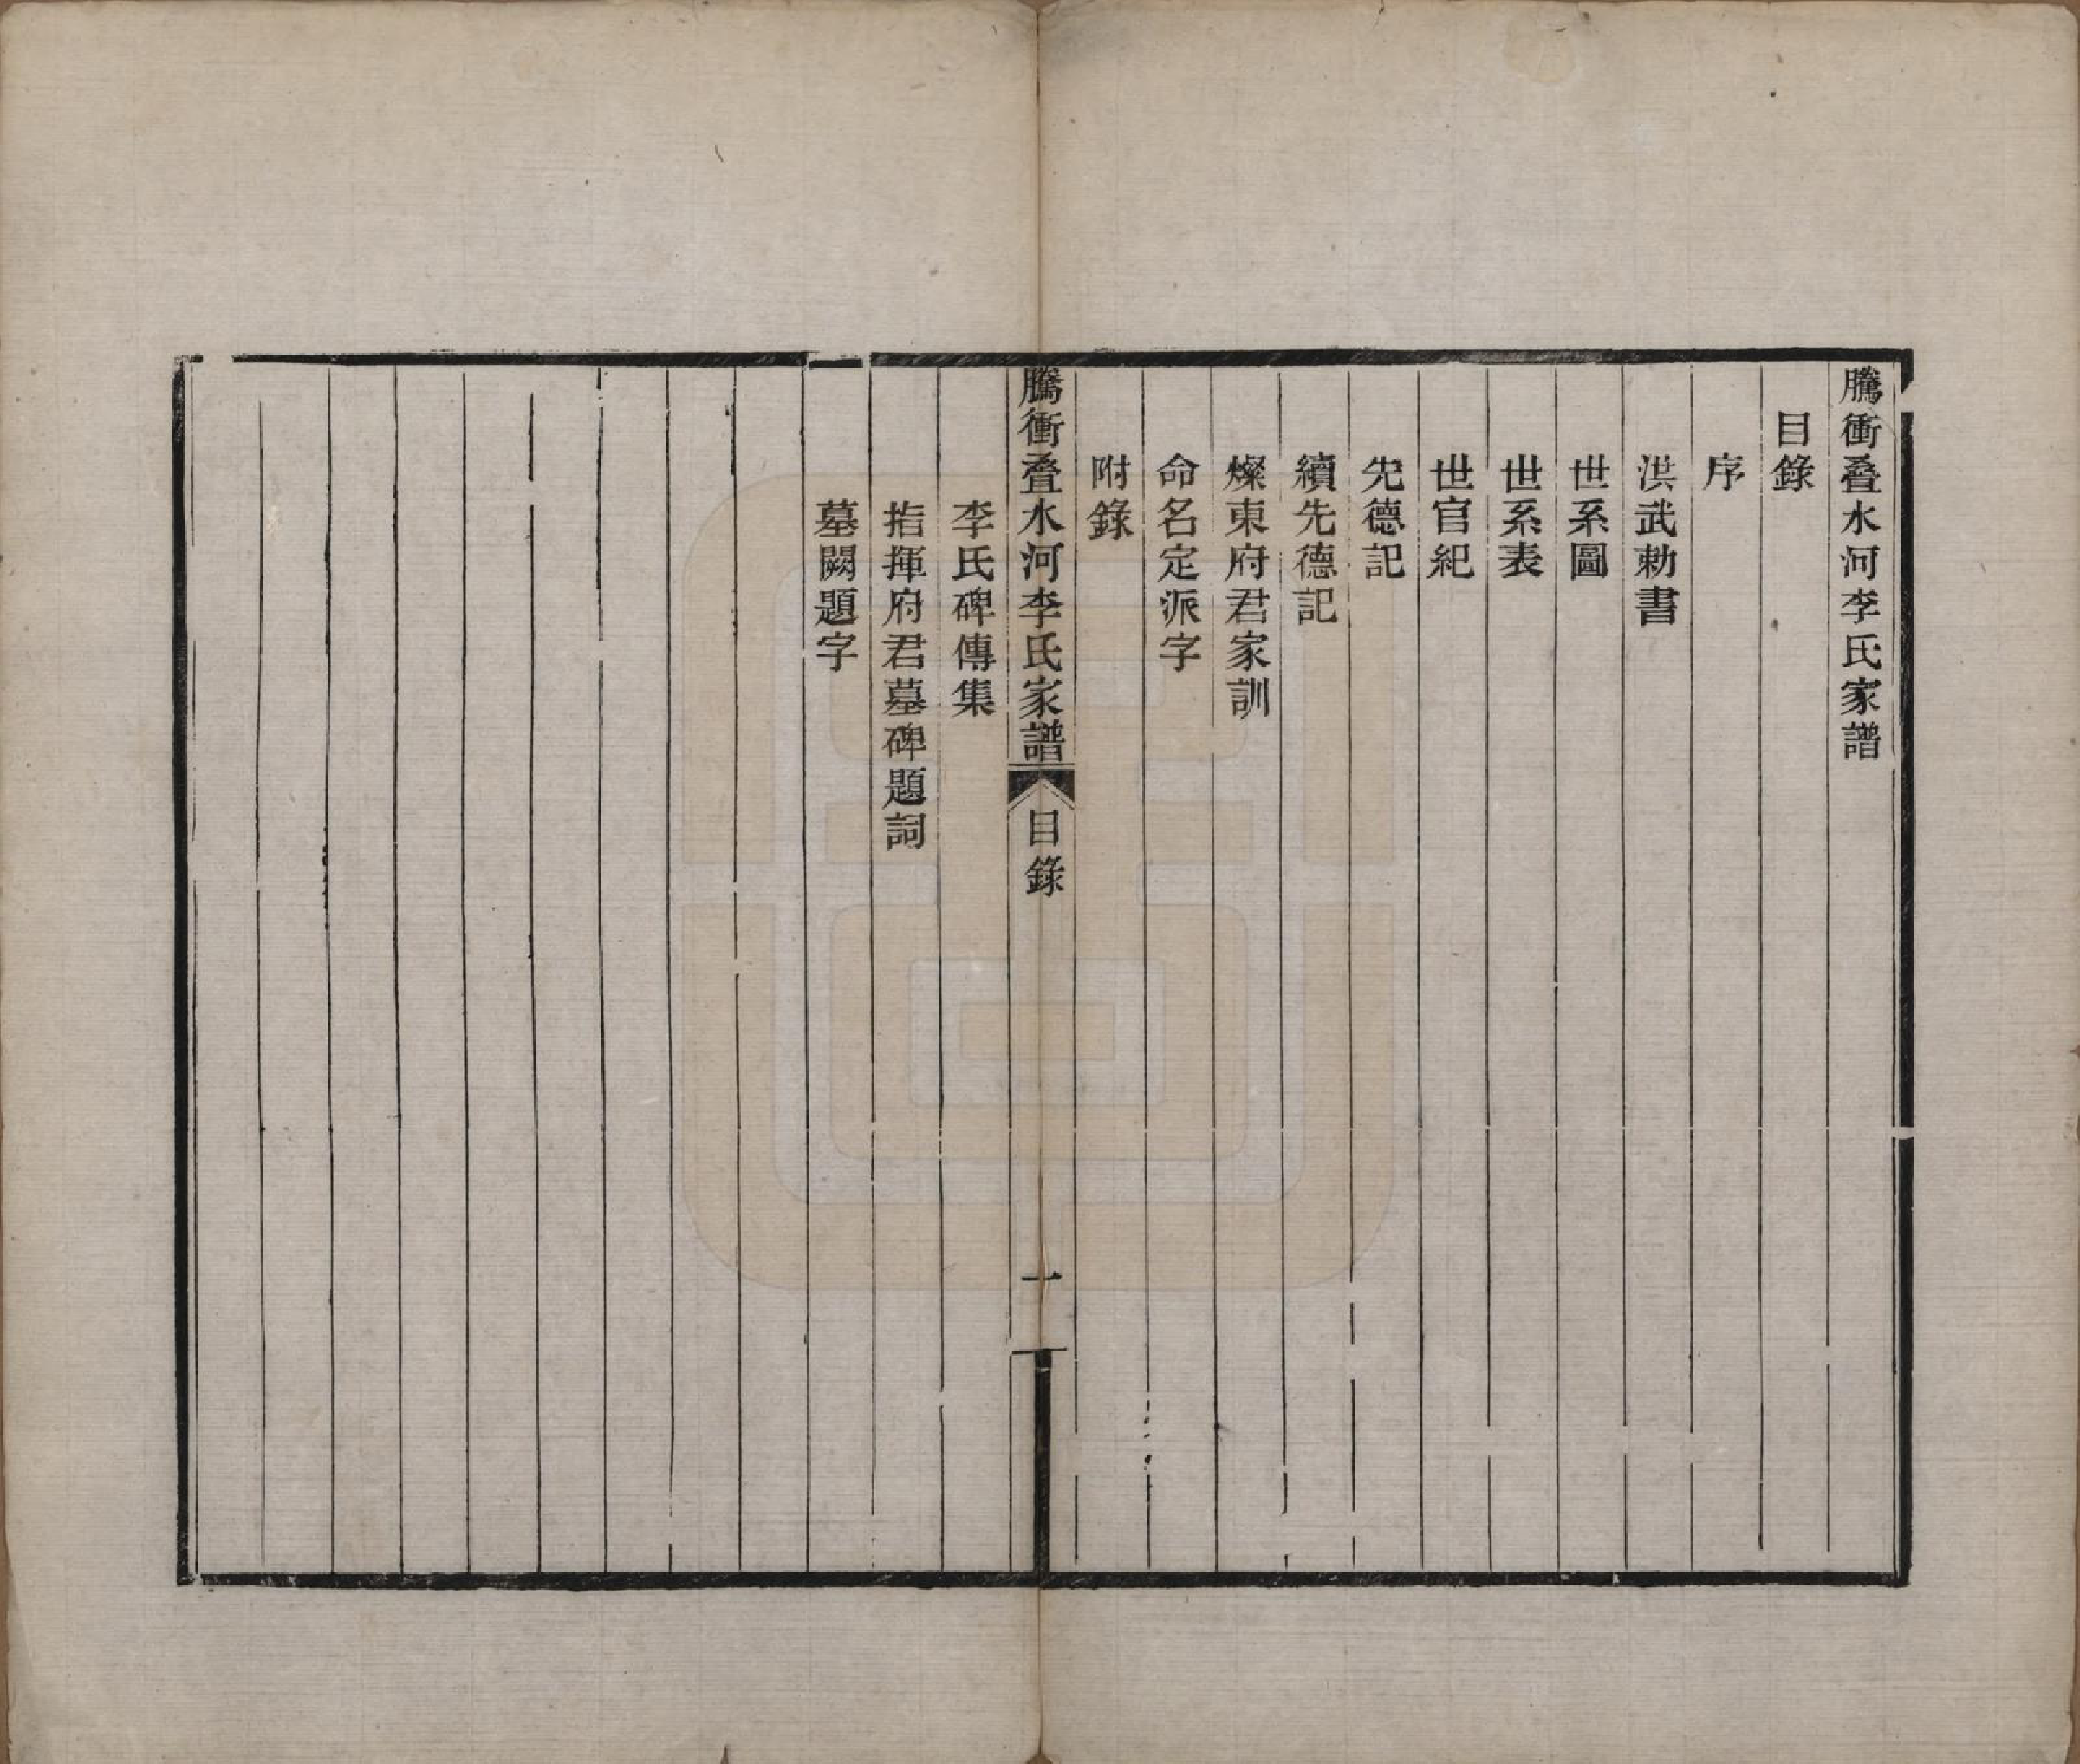 騰衝叠水河李氏家譜
目錄
序
洪武勅書
世系圖
世系表
世官紀
先德記
續先德記
燦東府君家訓
命名定派字
附錄
騰衝叠水河李氏家譜 目錄 一
李氏碑傳集
指揮府君墓碑題詞
墓闕題字